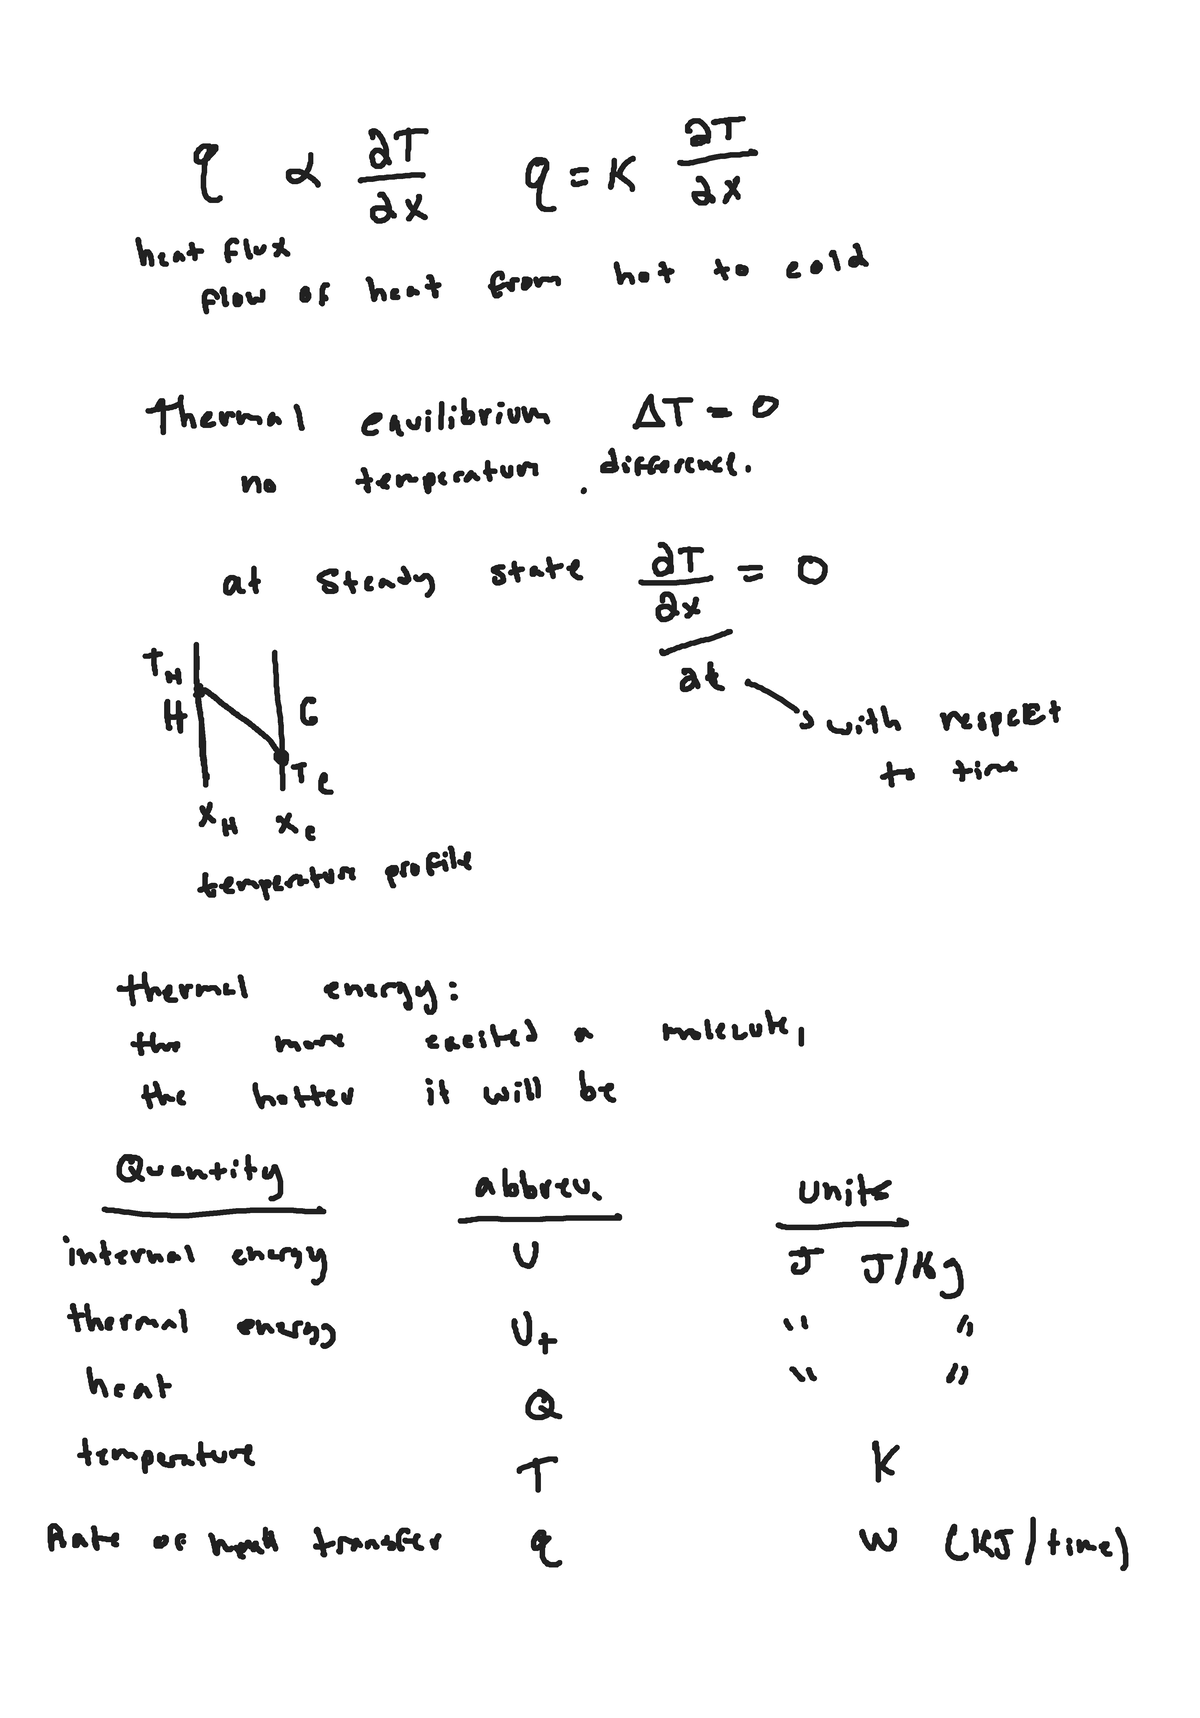 q ∝ ∂T/∂x q = K ∂T/∂x
heat flux
flow of heat from hot to cold
Thermal equilibrium ΔT = 0
no temperature difference.
at steady state ∂T/∂x / ∂t = 0
with respect
to time
T_H
H C
T_C
X_H X_C
temperature profile
thermal energy:
the more excited a molecule,
the hotter it will be
Quantity abbrev. units
internal energy U J J/Kg
thermal energy U_t " "
heat Q " "
temperature T K
Rate of heat transfer q W (KJ/time)